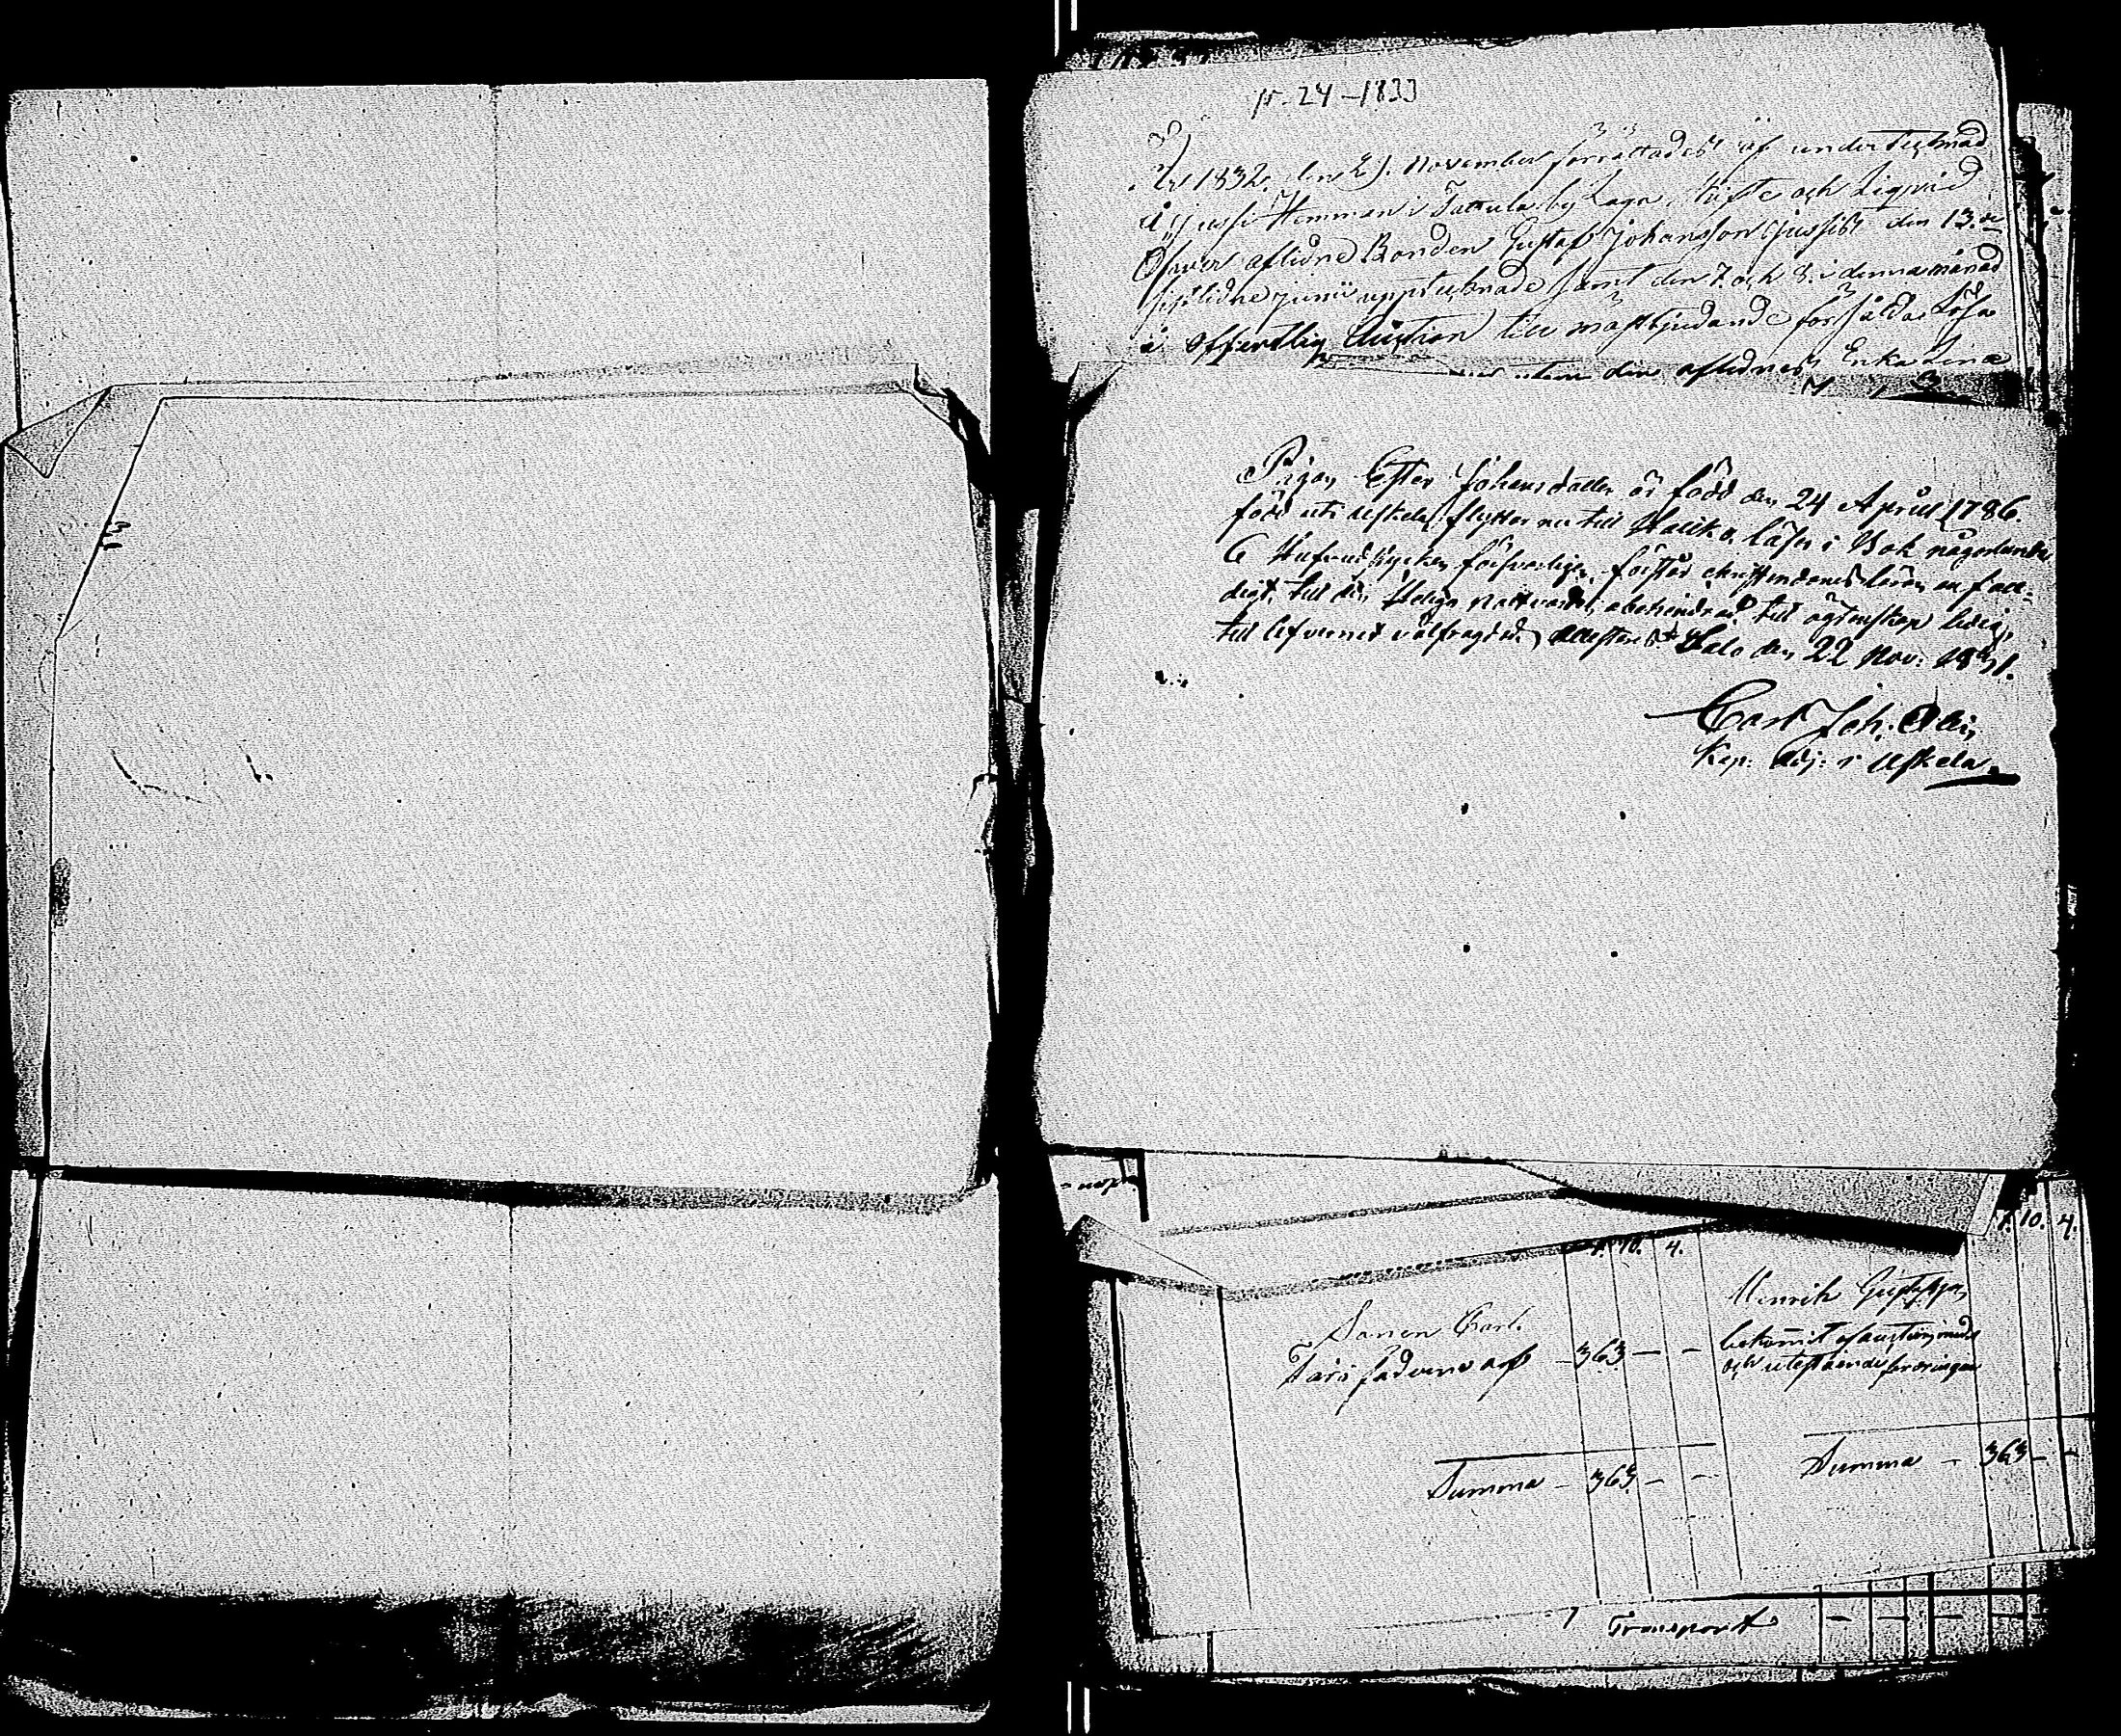 N. 24 – 1833
År 1832. den 2 November förrättades af undertecknad
å Jussi Hemman i Tattula by Laga Skifte och Liqvid
Öfver aflidne Bonden Gustaf Johansson Jussis den 13.de
sistlidne junii upptecknade samt den 7. och 8. i denna månad
å offentlig Auction till mästbjudande försålda Lösa
den aflidnes Enka Lena
Pigan Ester Johansdotter är född den 24 April 1786.
född uti Uskela, flyttar nu till Haliko, läser i Bok någorlunda
6 Hufvudstycken försvarligen, förstår christendomens läran enfal-
digt, till den Heliga Nattvarden obehindrad, till ägtenskap ledig,
till lefvernet välfrägdad. Attesteras Salo den 22 Nov: 1831.
Carl Joh:
Kap: Adj: i Uskela
7. 10. 4.
10. 4.
Sonen Carl
fäderne arf – 363 – –
Henrik Gustafsson
bekommit af auctions medel
och utestående fordringar
Summa – 363 – –
Summa – 363 – –
Transport